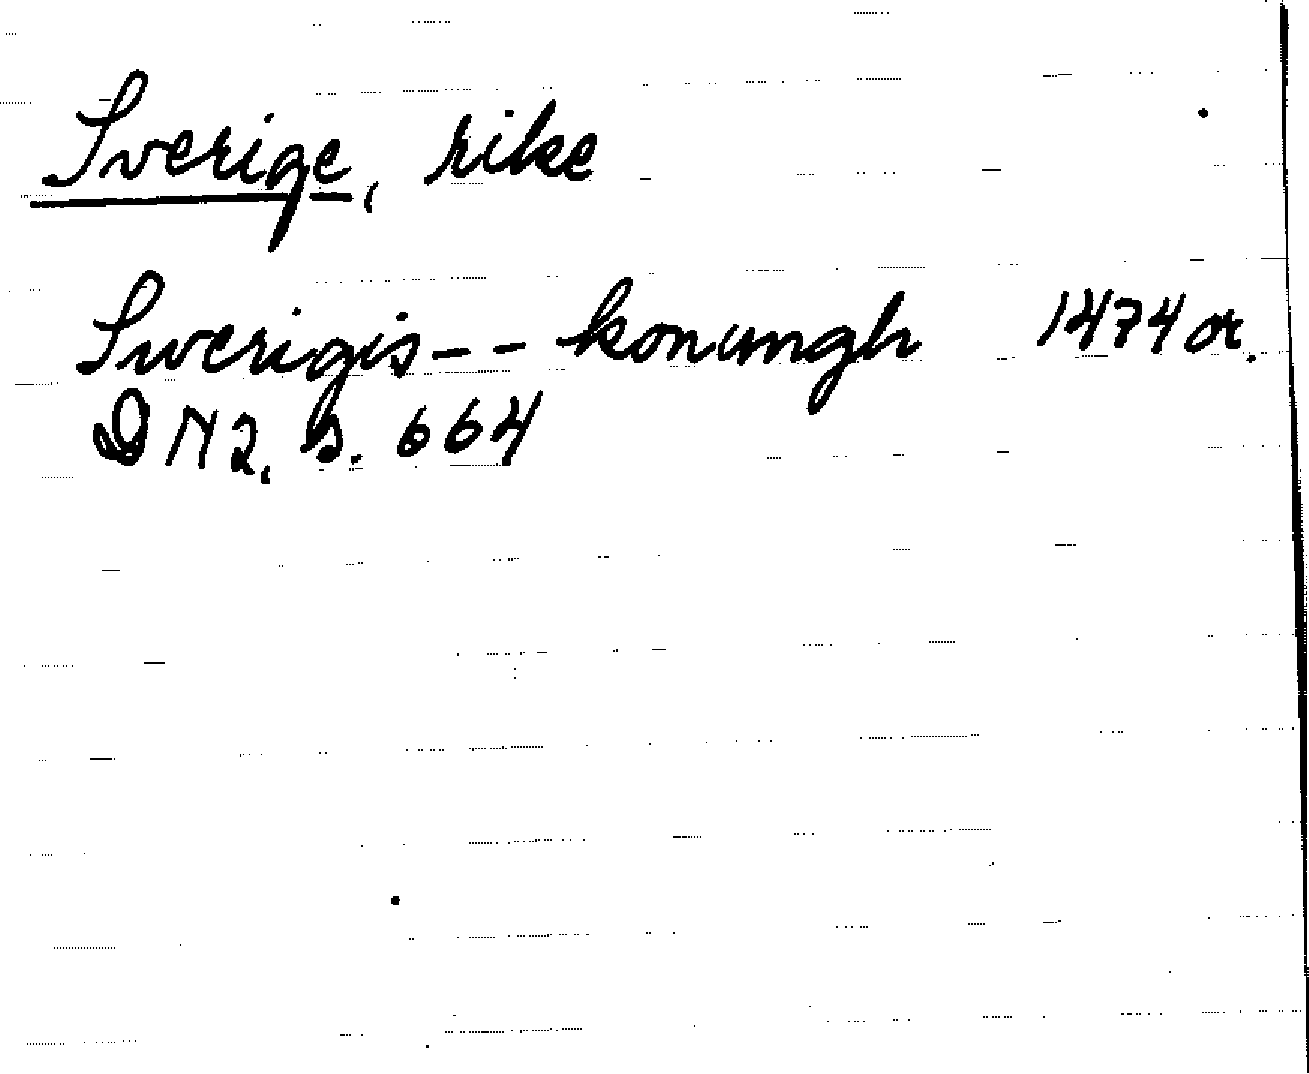 Sverige, rike
Swerigis -- konungh 1474 or.
DN2. s. 664